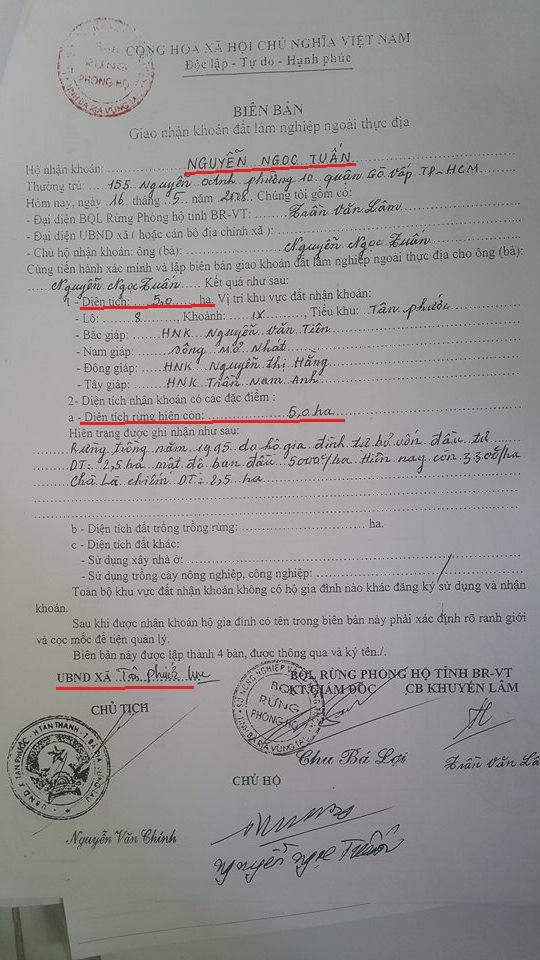 BQL
RỪNG
PHÒNG HỘ
TỈNH BÀ RỊA VŨNG TÀU
CỘNG HÒA XÃ HỘI CHỦ NGHĨA VIỆT NAM
Độc lập - Tự do - Hạnh phúc
BIÊN BẢN
Giao nhận khoán đất lâm nghiệp ngoài thực địa
Hộ nhận khoán: NGUYỄN NGỌC TUẤN
Thường trú: 155 Nguyễn phường 10 quận Gò Vấp TP-HCM
Hôm nay, ngày 16 tháng 5 năm Chúng tôi gồm có:
- Đại diện BQL Rừng Phòng hộ tỉnh BR-VT: Trần Văn Lâm
- Đại diện UBND xã ( hoặc cán bộ địa chính xã ):
- Chủ hộ nhận khoán: ông (bà): Nguyễn Ngọc Tuấn
Cùng tiến hành xác minh và lập biên bản giao khoán đất lâm nghiệp ngoài thực địa cho ông (bà):
Nguyễn Ngọc Tuấn Kết quả như sau:
1 - Diện tích: 5,0 ha, Vị trí khu vực đất nhận khoán:
- Lô: 8, Khoảnh: IX, Tiểu khu: Tân phước
- Bắc giáp: HNK Nguyễn Văn Tiên
- Nam giáp: Sông Mỏ Nhát
- Đông giáp: HNK Nguyễn Thị Hằng
- Tây giáp: HNK Trần Nam Anh
2- Diện tích nhận khoán có các đặc điểm :
a - Diện tích rừng hiện còn: 5,0 ha
Hiện trạng được ghi nhận như sau:
Rừng trồng năm 1995 do hộ gia đình tự bỏ vốn đầu tư
DT: 2,5 ha mật độ ban đầu 5000c/ha Hiện nay còn 3300/ha
Chà Là chiếm DT: 2,5 ha
b - Diện tích đất trống trồng rừng: ha.
c - Diện tích đất khác:
- Sử dụng xây nhà ở:
- Sử dụng trồng cây nông nghiệp, công nghiệp:
Toàn bộ khu vực đất nhận khoán không có hộ gia đình nào khác đăng ký sử dụng và nhận
khoán.
Sau khi được nhận khoán hộ gia đình có tên trong biên bản này phải xác định rõ ranh giới
và cọc mốc để tiện quản lý.
Biên bản này được lập thành 4 bản, được thông qua và ký tên./.
UBND XÃ Tân phước
BQL RỪNG PHÒNG HỘ TỈNH BR-VT
CHỦ TỊCH
KT GIÁM ĐỐC CB KHUYẾN LÂM
SỞ NÔNG NGHIỆP VÀ
BQL
RỪNG
PHÒNG HỘ
TỈNH BÀ RỊA VŨNG TÀU
U.B.N.D X. TÂN PHƯỚC - H. TÂN THÀNH - T. BÀ RỊA VŨNG TÀU
Chu Bá Lợi
Trần Văn Lâ
CHỦ HỘ
Nguyễn Văn Chính
Nguyễn Ngọc Tuấn